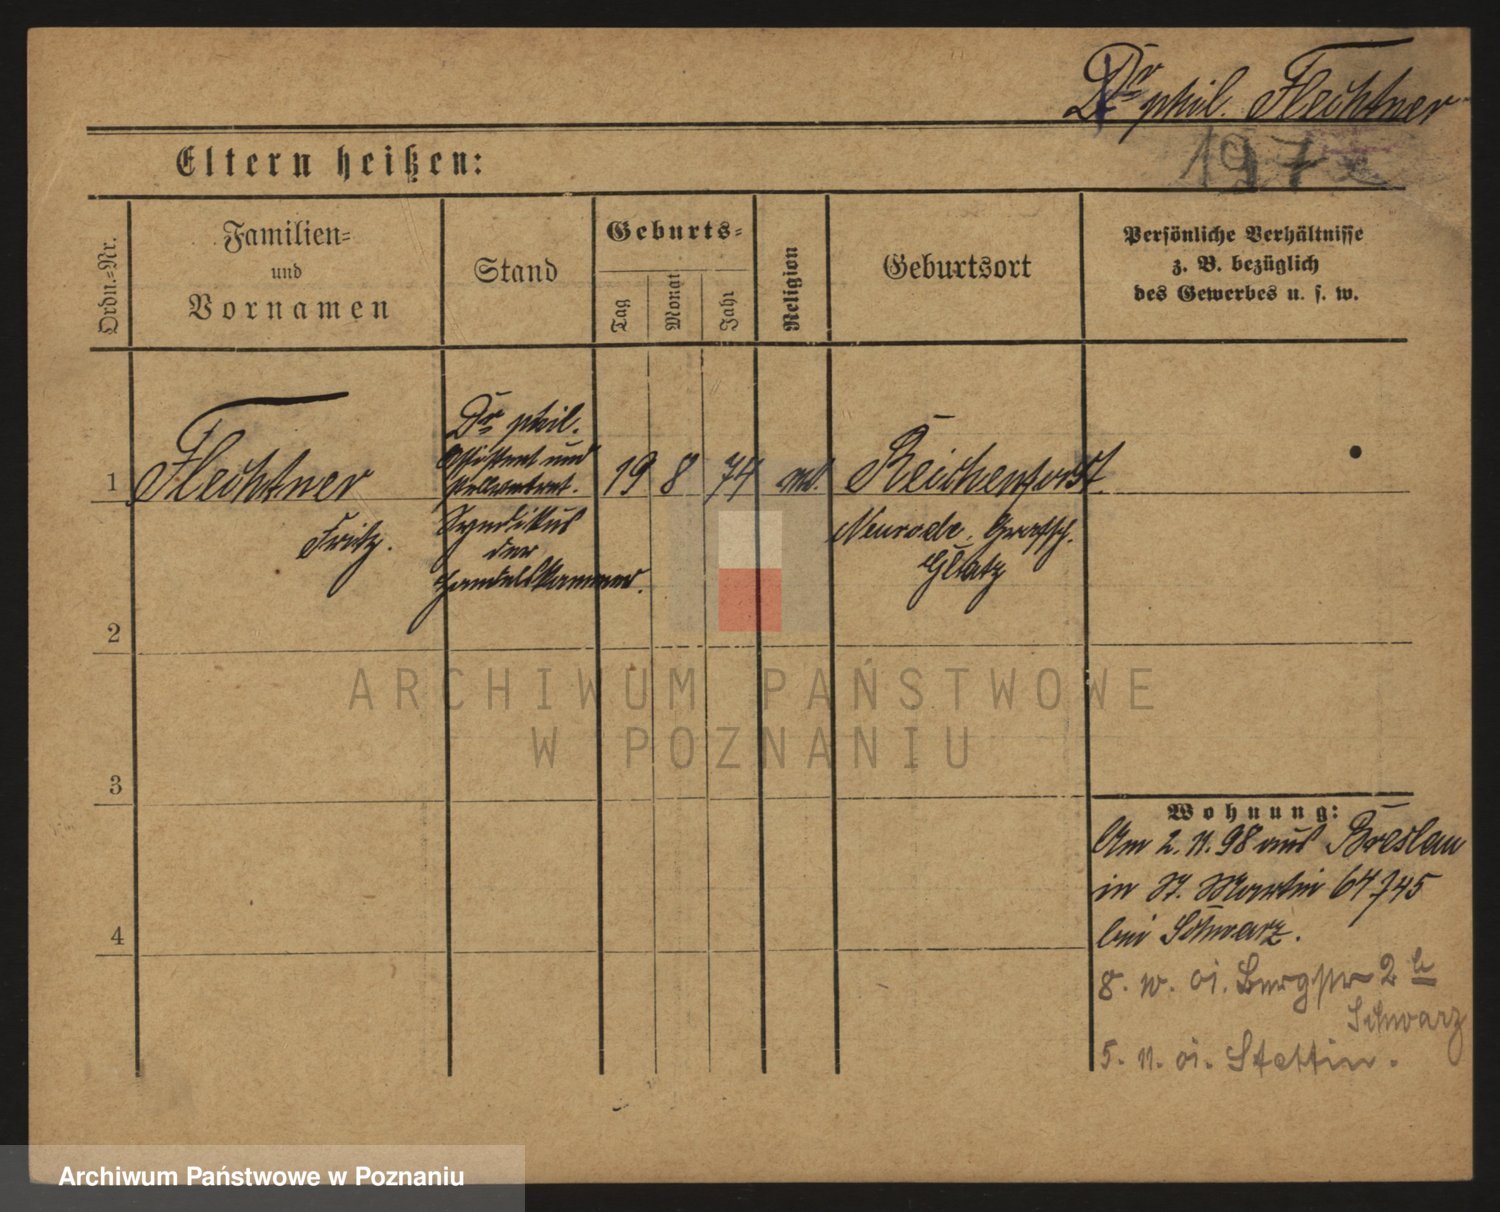 Dr. phil. Flechtner
197
Eltern heißen:
Ordn.-Nr.
Familien-
und
Vornamen
Stand
Geburts-
Tag
Monat
Jahr
Religion
Geburtsort
Persönliche Verhältnisse
z. B. bezüglich
des Gewerbes u. s. w.
1
Flechtner
Fritz.
Dr. phil.
Assistent und
Syndikus
der
Handelskammer.
19
8
74
Reichenforst.
Neurode. Grafsch.
Glatz
2
3
4
Wohnung:
Am 2. 11. 98 aus Breslau
in St. Martin 64 745
bei Schwarz.
8. 10. 01. Bergstr 2 b
Schwarz
5. 11. 01. Stettin.
ARCHIWUM PAŃSTWOWE
W POZNANIU
Archiwum Państwowe w Poznaniu